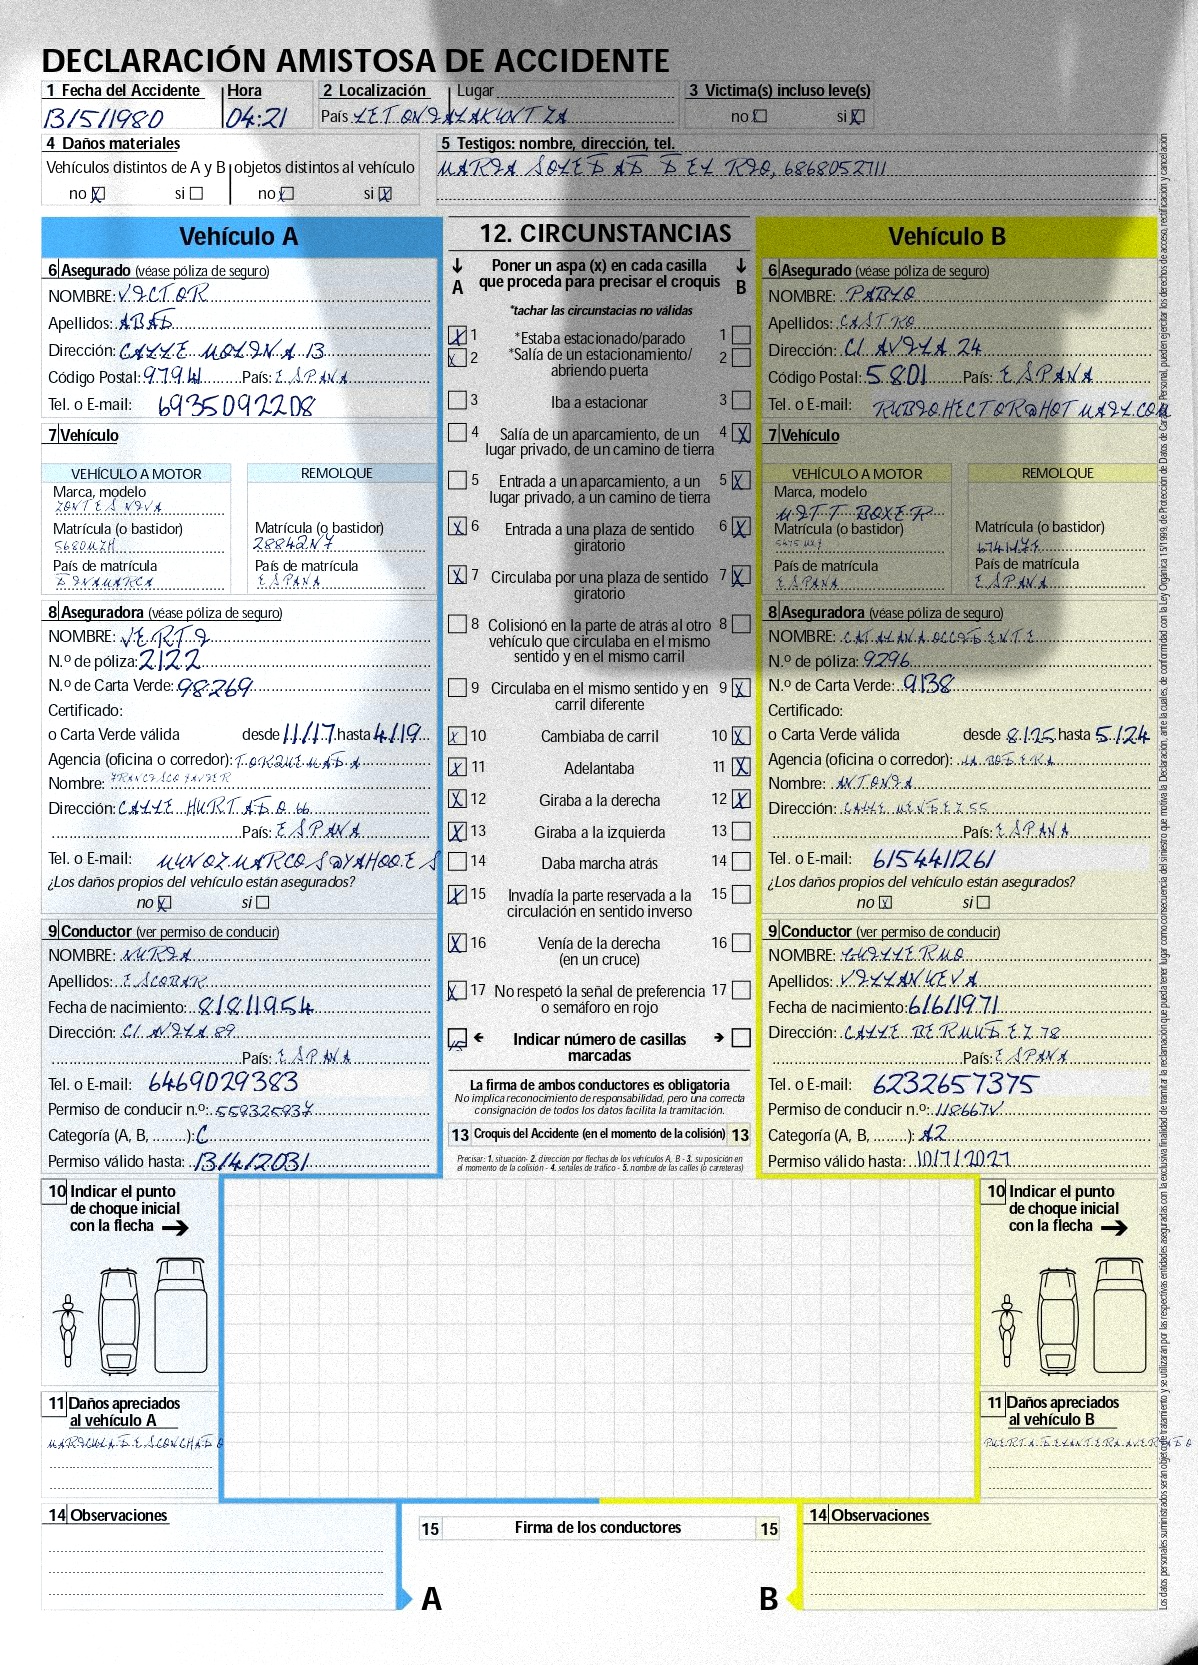 DECLARACIÓN AMISTOSA DE ACCIDENTE
1 Fecha del Accidente Hora 2 Localización Lugar 3 Victima(s) incluso leve(s)
13/5/1980 04:21 País LETONIA LAKUNTZA no si X
4 Daños materiales 5 Testigos: nombre, dirección, tel.
Vehículos distintos de A y B objetos distintos al vehículo MARIA SOLEDAD DEL RIO, 6868052711
no X si no si X
Vehículo A 12. CIRCUNSTANCIAS Vehículo B
Poner un aspa (x) en cada casilla que proceda para precisar el croquis
A B
*tachar las circunstacias no válidas
6 Asegurado (véase póliza de seguro)
NOMBRE: VICTOR
Apellidos: ABAD
Dirección: CALLE MOLINA 13
Código Postal: 97941 País: ESPANA
Tel. o E-mail: 6935092208
7 Vehículo
VEHÍCULO A MOTOR REMOLQUE
Marca, modelo
ZONTES NIVA
Matrícula (o bastidor) Matrícula (o bastidor)
5680MZH 28842N7
País de matrícula País de matrícula
DINAMARCA ESPANA
8 Aseguradora (véase póliza de seguro)
NOMBRE: VERTI
N.º de póliza: 2122
N.º de Carta Verde: 98269
Certificado:
o Carta Verde válida desde 11/17 hasta 4/19
Agencia (oficina o corredor): TORQUEMADA
Nombre: FRANCISCO JAVIER
Dirección: CALLE HURTADO 66
País: ESPANA
Tel. o E-mail: MUNOZMARCOS@YAHOO.ES
¿Los daños propios del vehículo están asegurados?
no X si
9 Conductor (ver permiso de conducir)
NOMBRE: NURIA
Apellidos: ESCOBAR
Fecha de nacimiento: 8/8/1954
Dirección: C/ AVILA 89
País: ESPANA
Tel. o E-mail: 6469029383
Permiso de conducir n.º: 55932593Z
Categoría (A, B, ........): C
Permiso válido hasta: 13/4/2031
X 1 *Estaba estacionado/parado 1
X 2 *Salía de un estacionamiento/ abriendo puerta 2
3 Iba a estacionar 3
4 Salía de un aparcamiento, de un lugar privado, de un camino de tierra 4 X
5 Entrada a un aparcamiento, a un lugar privado, a un camino de tierra 5 X
X 6 Entrada a una plaza de sentido giratorio 6 X
X 7 Circulaba por una plaza de sentido giratorio 7 X
8 Colisionó en la parte de atrás al otro vehículo que circulaba en el mismo sentido y en el mismo carril 8
9 Circulaba en el mismo sentido y en carril diferente 9 X
X 10 Cambiaba de carril 10 X
X 11 Adelantaba 11 X
X 12 Giraba a la derecha 12 X
X 13 Giraba a la izquierda 13
14 Daba marcha atrás 14
X 15 Invadía la parte reservada a la circulación en sentido inverso 15
X 16 Venía de la derecha (en un cruce) 16
X 17 No respetó la señal de preferencia o semáforo en rojo 17
Indicar número de casillas marcadas
La firma de ambos conductores es obligatoria
No implica reconocimiento de responsabilidad, pero una correcta consignación de todos los datos facilita la tramitación.
13 Croquis del Accidente (en el momento de la colisión) 13
Precisar: 1. situación- 2. dirección por flechas de los vehículos A, B - 3. su posición en
el momento de la colisión - 4. señales de tráfico - 5. nombre de las calles (o carreteras)
6 Asegurado (véase póliza de seguro)
NOMBRE: PABLO
Apellidos: CASTRO
Dirección: C/ AVILA 24
Código Postal: 5801 País: ESPANA
Tel. o E-mail: RUBIO.HECTOR@HOTMAIL.COM
7 Vehículo
VEHÍCULO A MOTOR REMOLQUE
Marca, modelo
MITT BOXER
Matrícula (o bastidor) Matrícula (o bastidor)
País de matrícula País de matrícula
ESPANA ESPANA
8 Aseguradora (véase póliza de seguro)
NOMBRE: CATALANA OCCIDENTE
N.º de póliza: 9296
N.º de Carta Verde: 9138
Certificado:
o Carta Verde válida desde 8/25 hasta 5/24
Agencia (oficina o corredor): LA BODERA
Nombre: ANTONIA
Dirección: CALLE MENDEZ 55
País: ESPANA
Tel. o E-mail: 6154411261
¿Los daños propios del vehículo están asegurados?
no X si
9 Conductor (ver permiso de conducir)
NOMBRE: GUILLERMO
Apellidos: VILLANUEVA
Fecha de nacimiento: 6/6/1971
Dirección: CALLE BERMUDEZ 78
País: ESPANA
Tel. o E-mail: 6232657375
Permiso de conducir n.º: 118667V
Categoría (A, B, ........): A2
Permiso válido hasta: 10/7/2027
10 Indicar el punto de choque inicial con la flecha
11 Daños apreciados al vehículo A
MARICULA DESCONCHADO
14 Observaciones
15 Firma de los conductores 15
A B
10 Indicar el punto de choque inicial con la flecha
11 Daños apreciados al vehículo B
PUERTA DELANTERA AVERIADO
14 Observaciones
Los datos personales suministrados serán objeto de tratamiento y se utilizarán por las respectivas entidades aseguradas con la exclusiva finalidad de tramitar la reclamación que pueda tener lugar como consecuencia del siniestro que motiva la Declaración, ante la cuales, de conformidad con la Ley Orgánica 15/1999, de Protección de Datos de Carácter Personal, pueden ejercitar los derechos de acceso, rectificación y cancelación